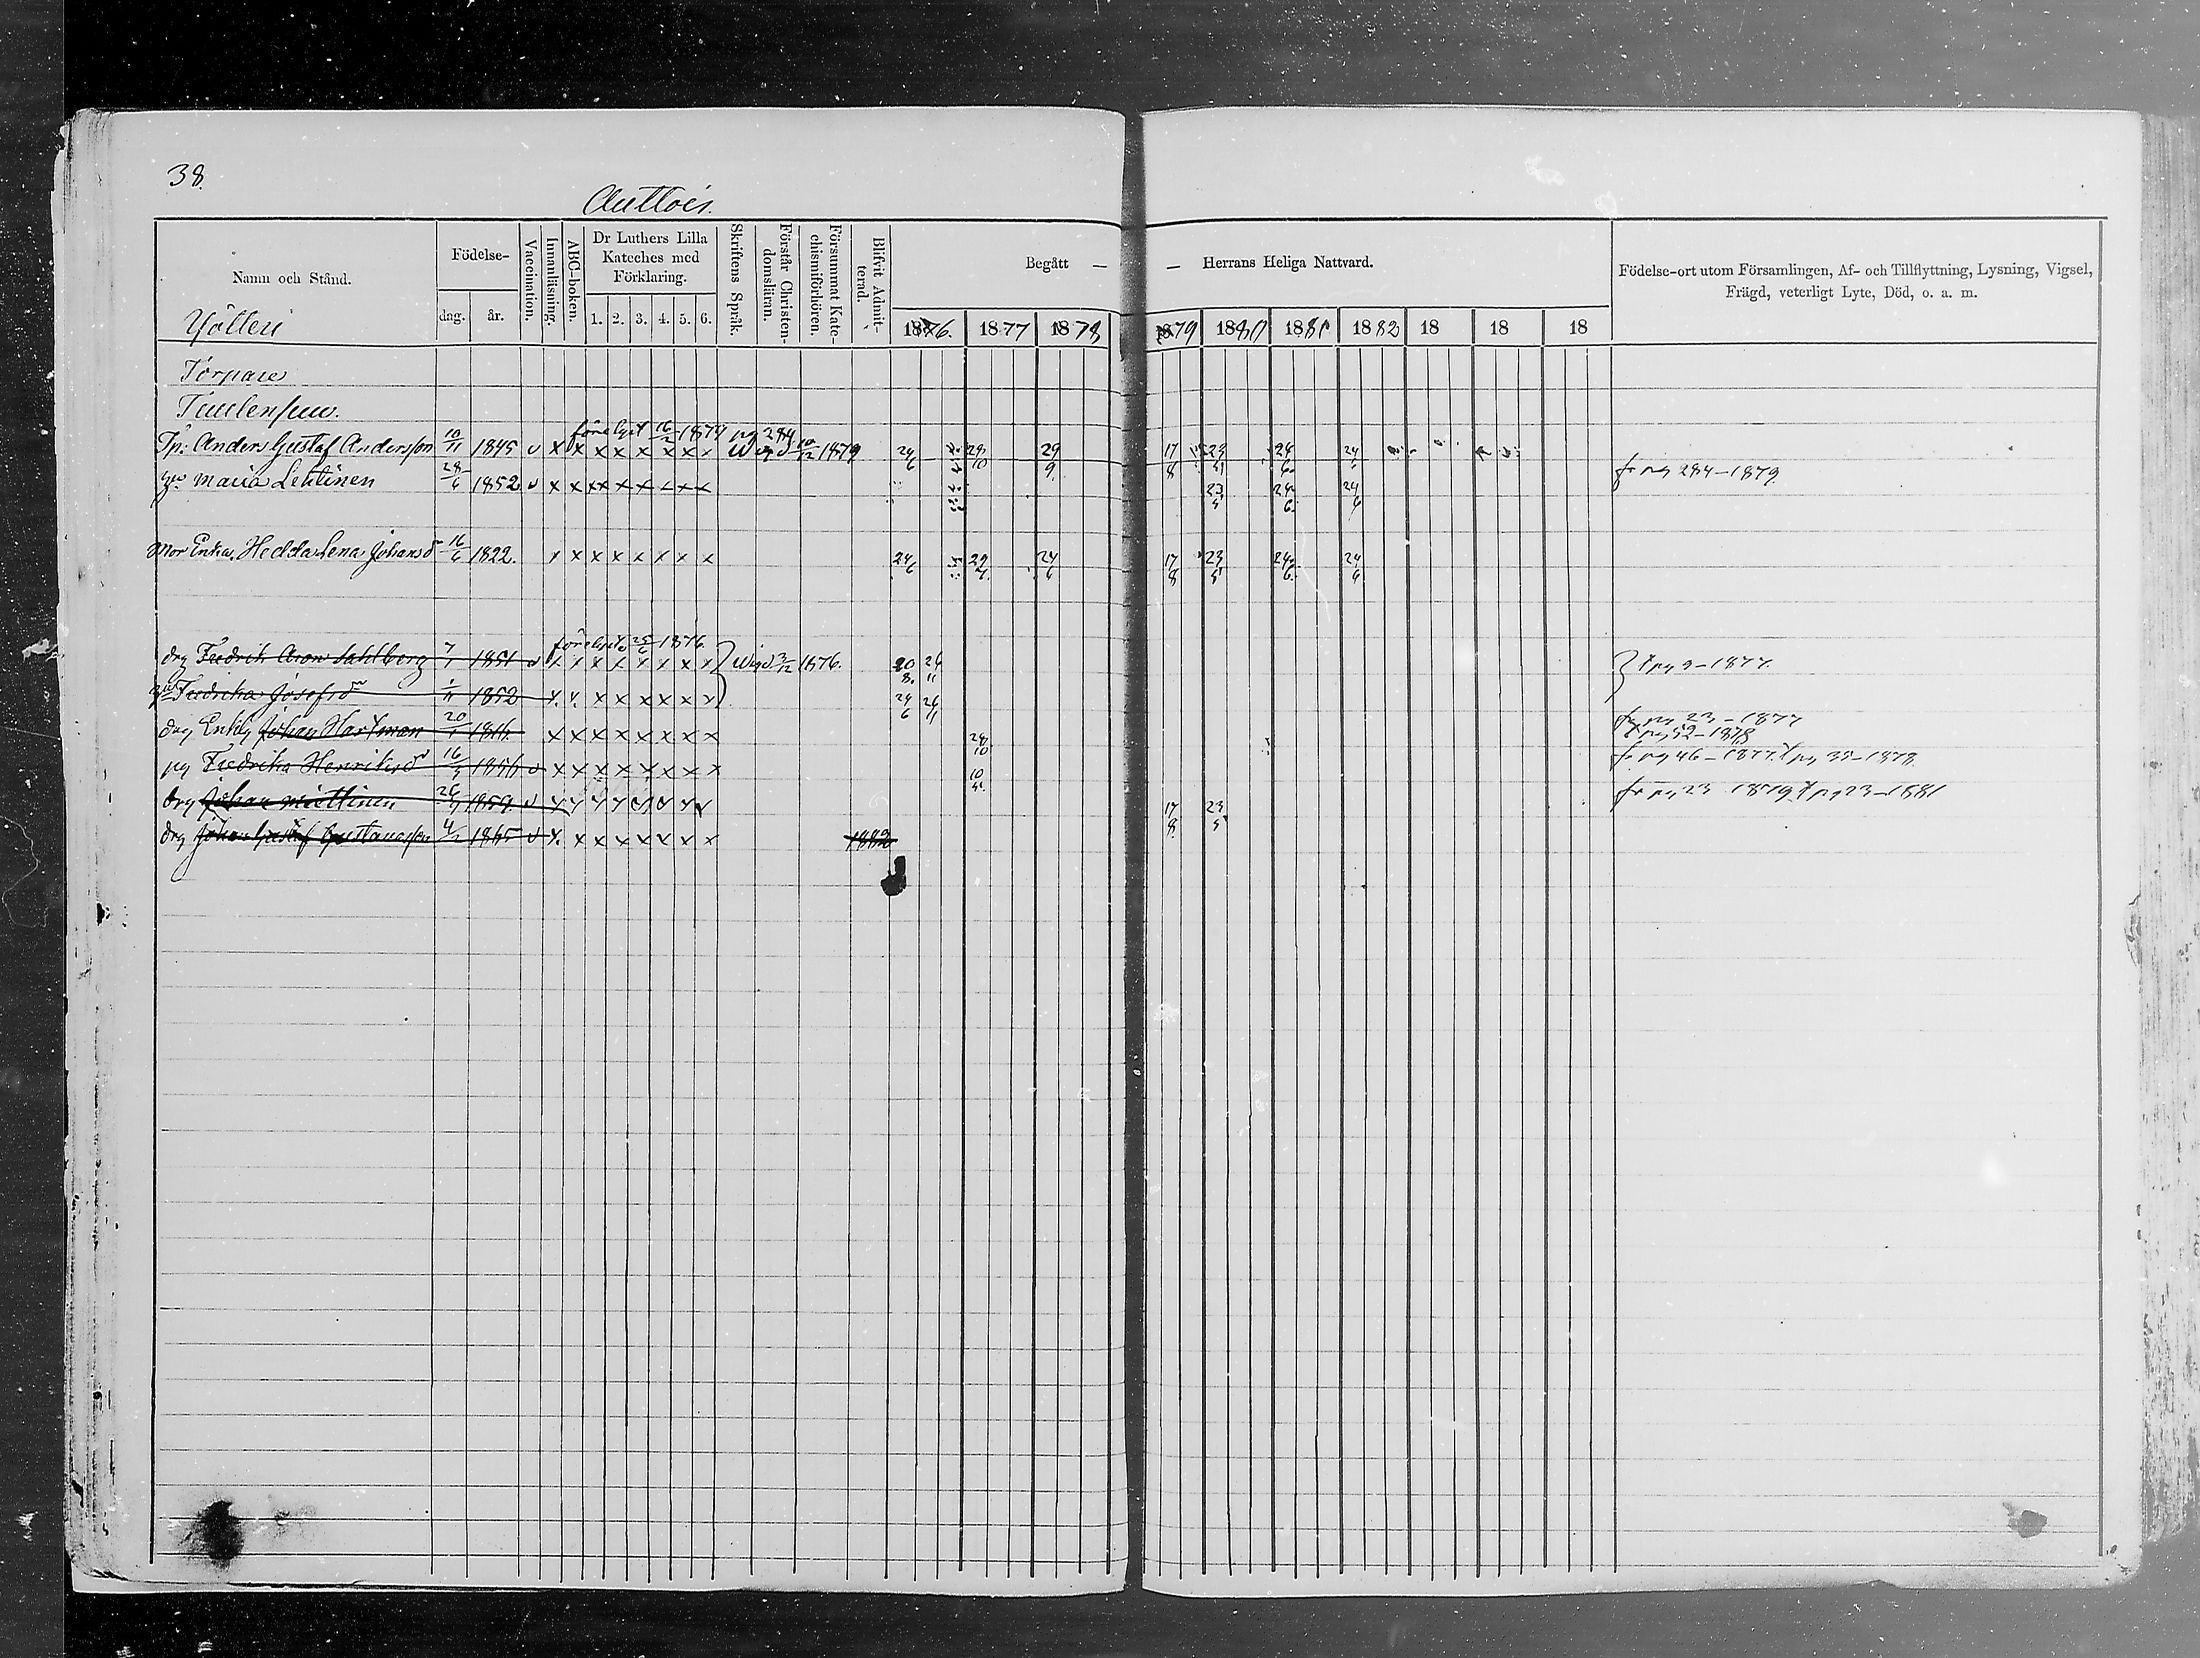 38.
Auttois.
Namn och Stånd.
Födelse-
dag. år.
Vaccination.
Innanläsning.
ABC-boken.
Dr Luthers Lilla
Kateches med
Förklaring.
1. 2. 3. 4. 5. 6.
Skriftens Språk.
Förstår Christen-
domsläran.
Försummat Kate-
chismiförhören.
Blifvit Admit-
terad.
Begått — — Herrans Heliga Nattvard.
1876. 1877 1878 1879 1880 1881 1882 18 18 18
Födelse-ort utom Församlingen, Af- och Tillflyttning, Lysning, Vigsel,
Frägd, veterligt Lyte, Död, o. a. m.
Torpare
16/2 1874 pg 284
Tp: Anders Gustaf Andersson 10/11 1845 v x x x x x x x x 10/12 1879 24/6 29/10 29/9 17/8 23/5 24/6 24
Maria Lehtinen 28/6 1852 v x x x x x x x x 23/5 24/6 24/6 fr pg 284–1879
Mor Enka Hedda Lena Johansdr 16/6 1822. x x x x x x x x 24/6 24/6 17/8 23/5 24/6 24/6
25/6 1876.
drg Fredrik Aron Sahlberg 1851 v x x x x x x x x wigd 3/12 1876. 20/8. 26/11 pg 9–1877.
Fredrika Josefsdr 1852 x. x. x x x x x x 24/6 26/11
drg Enkl Johan Hartman x x x x x x x x fr pg 23–1877
pg 52–1878
pg Fredrika Henriksdr 1856 v x x x x x x x x fr pg 46–1877.
drg Johan Miettinen 1859 v 17/8 23/5 fr pg 23 1879 pg 23–1881
drg Johan Gustaf Gustavsson 1865 v x. x x x x x x x 1882